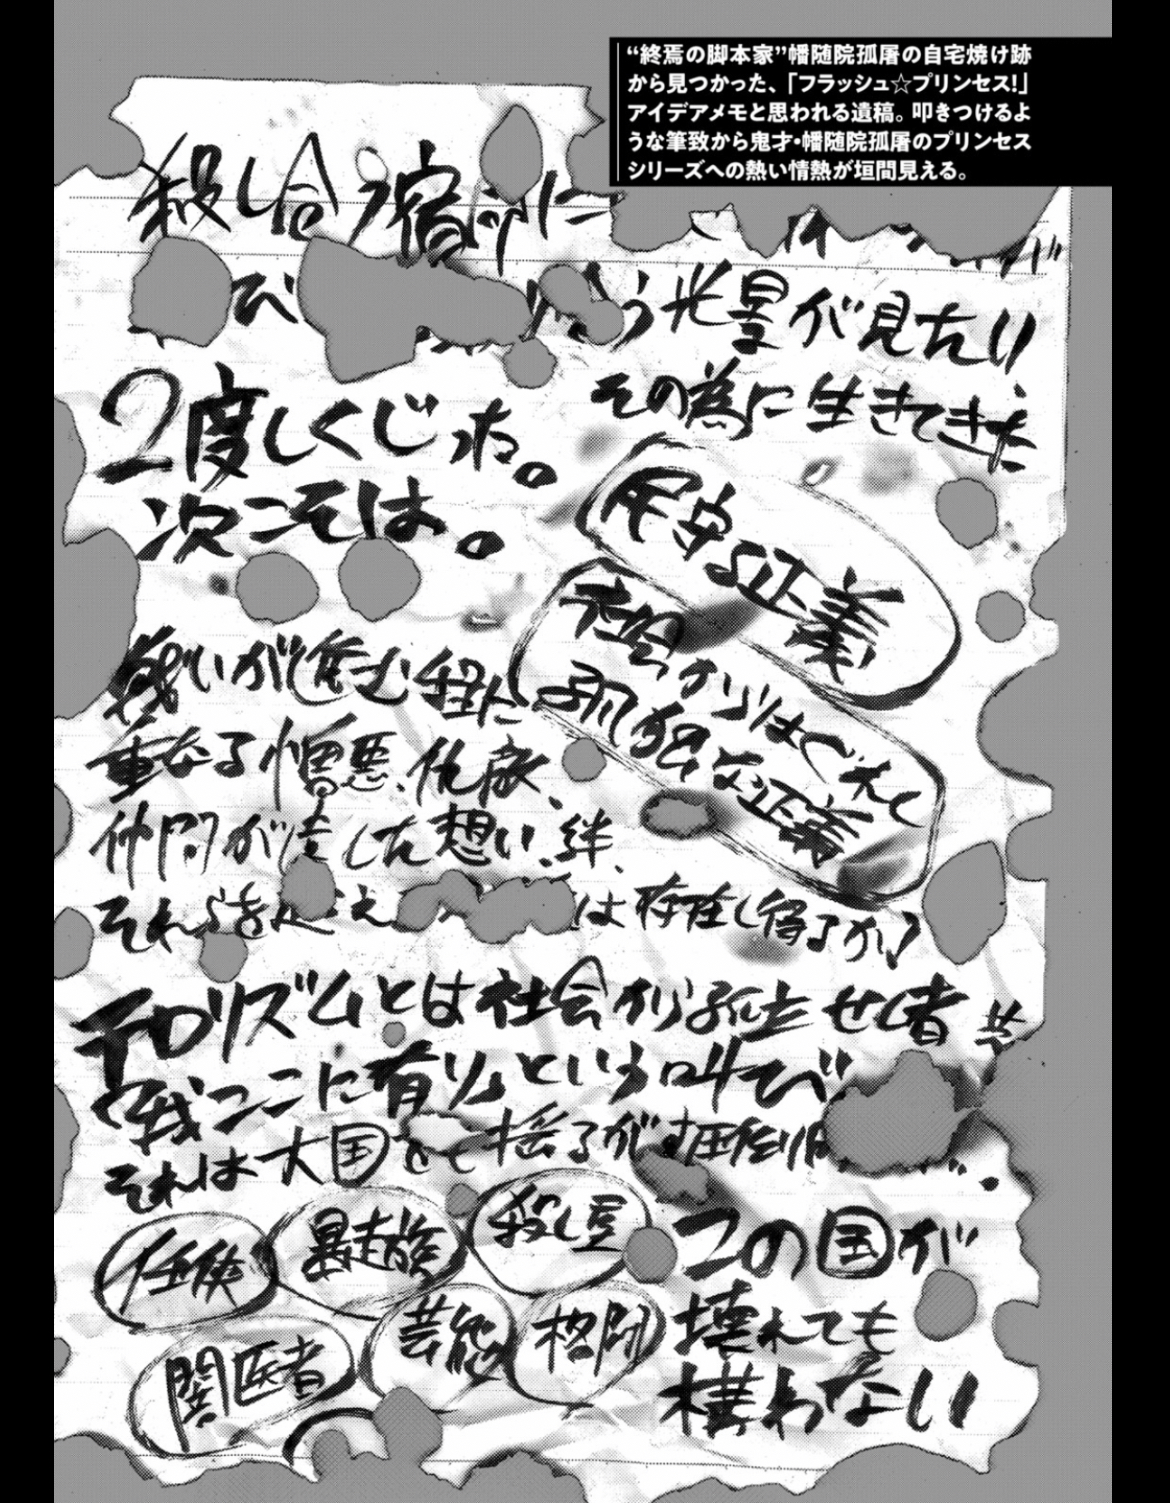 “終焉の脚本家”幡随院孤屠の自宅焼け跡
から見つかった、「フラッシュ☆プリンセス!」
アイデアメモと思われる遺稿。叩きつけるよ
うな筆致から鬼才・幡随院孤屠のプリンセス
シリーズへの熱い情熱が垣間見える。
殺し合う宿命に
び
う光景が見たい
その為に生きてきた
2度しくじった。
次こそは。
見守る正義
社会からはぐれし
孤独な正義
戦いが進む程に
重なる憎悪、仇敵、
仲間が遺した想い、絆、
それらを超え
は存在し得るか?
テロリズムとは社会から孤立せし者共
「我ここに有り」という叫び
それは大国をも揺るがす圧倒的
任侠
暴走族
殺し屋
闇医者
芸能
格闘
この国が
壊れても
構わない